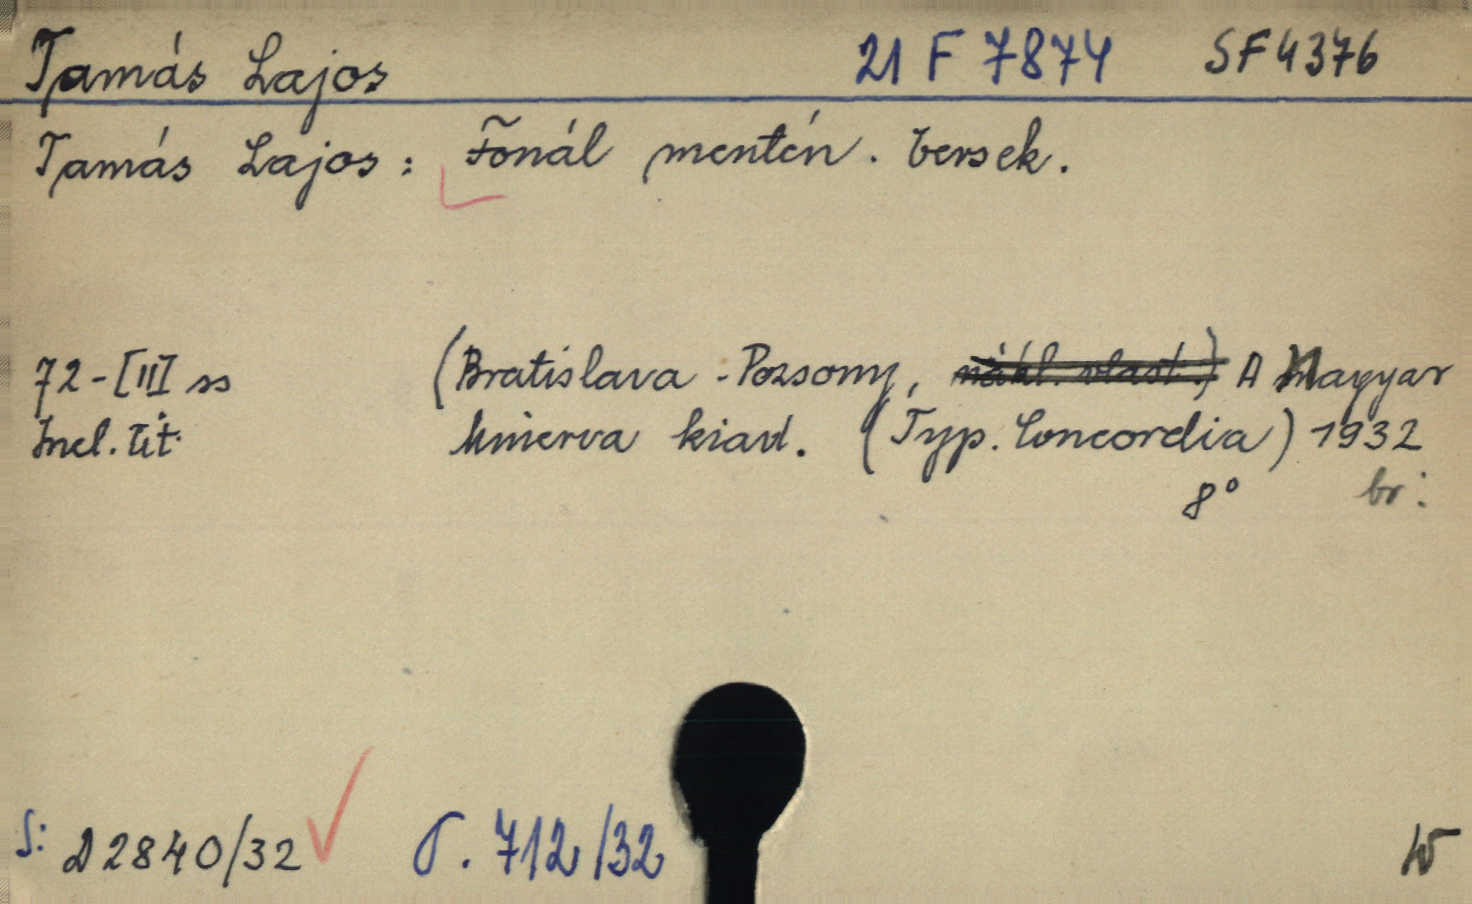 Tamás Lajos 21 F 7874 SF 4376
Tamás Lajos: Fonál mentén. Versek.
72-[III] ss (Bratislava-Pozsony, nákl. vlast.) A Magyar
Incl. tit. Minerva kiad. (Typ. Concordia) 1932
8° br:
S: D 2840/32 σ. 712/32 W